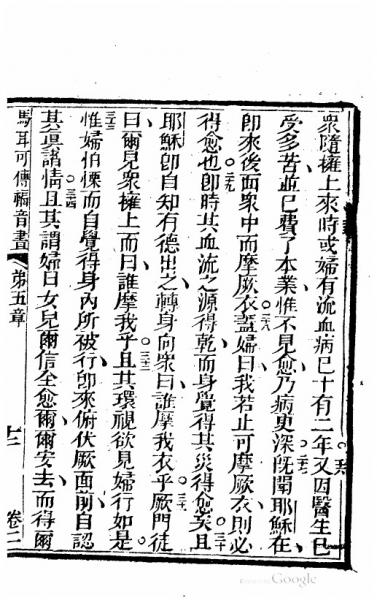 衆隨擁上來時或婦有流血病已十有二年又因醫生已
二六
受多苦並已費了本業惟不見愈乃病更深旣聞耶穌在
二七
卽來後面衆中而摩厥衣蓋婦曰我若止可摩厥衣則必
二八
得愈也卽時其血流之源得乾而身覺得其災得愈矣且
二九
三十
耶穌卽自知有德出之轉身向衆曰誰摩我衣乎厥門徒
三一
曰爾見衆擁上而曰誰摩我乎且其環視欲見婦行如是
三二
三三
惟婦怕慄而自覺得身內所被行卽來俯伏厥面前自認
其眞諸情且其謂婦曰女兒爾信全愈爾爾安去而得爾
三四
馬耳可傳福音書
第五章
十二
卷二
Google